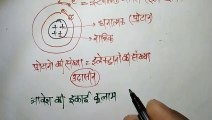 धनात्मक (प्रोटान)
नाभिक
प्रोटानों की संख्या = इलेक्ट्रानों की संख्या
उदासीन
आवेश की इकाई कूलाम